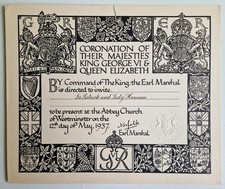 G R
E R
CORONATION OF
THEIR MAJESTIES
KING GEORGE VI &
QUEEN ELIZABETH
BY Command of The King, the Earl Marshal
is directed to invite
Sir Patrick and Lady Hannon
to be present at the Abbey Church
of Westminster on the
12th day of May, 1937.
Norfolk
Earl Marshal.